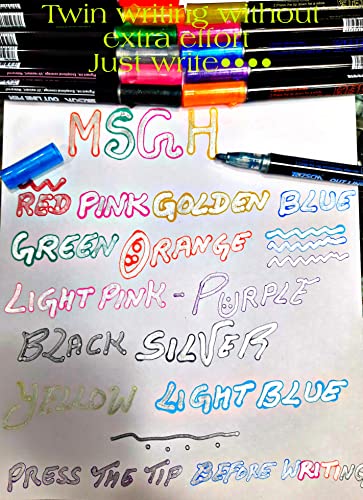 Twin writing without
extra effort
Just write••••
MSGH
RED PINK GOLDEN BLUE
GREEN ORANGE
LIGHT PINK - PURPLE
BLACK SILVER
YELLOW LIGHT BLUE
PRESS THE TIP BEFORE WRITING